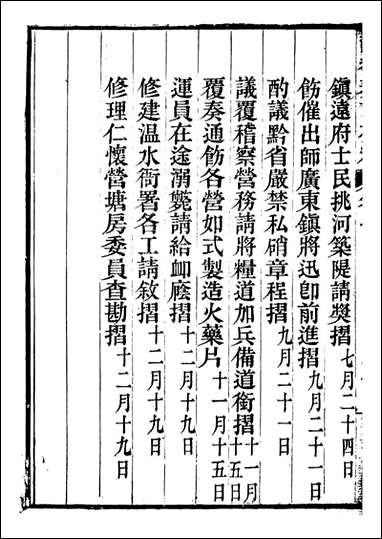 鎮遠府士民挑河築隄請獎摺七月二十四日
飭催出師廣東鎮將迅卽前進摺九月二十一日
酌議黔省嚴禁私硝章程摺九月二十一日
議覆稽察營務請將糧道加兵備道銜摺十一月十五日
覆奏通飭各營如式製造火藥片十一月十五日
運員在途溺斃請給卹廕摺十二月十九日
修建温水衙署各工請敘摺十二月十九日
修理仁懷營塘房委員查勘摺十二月十九日